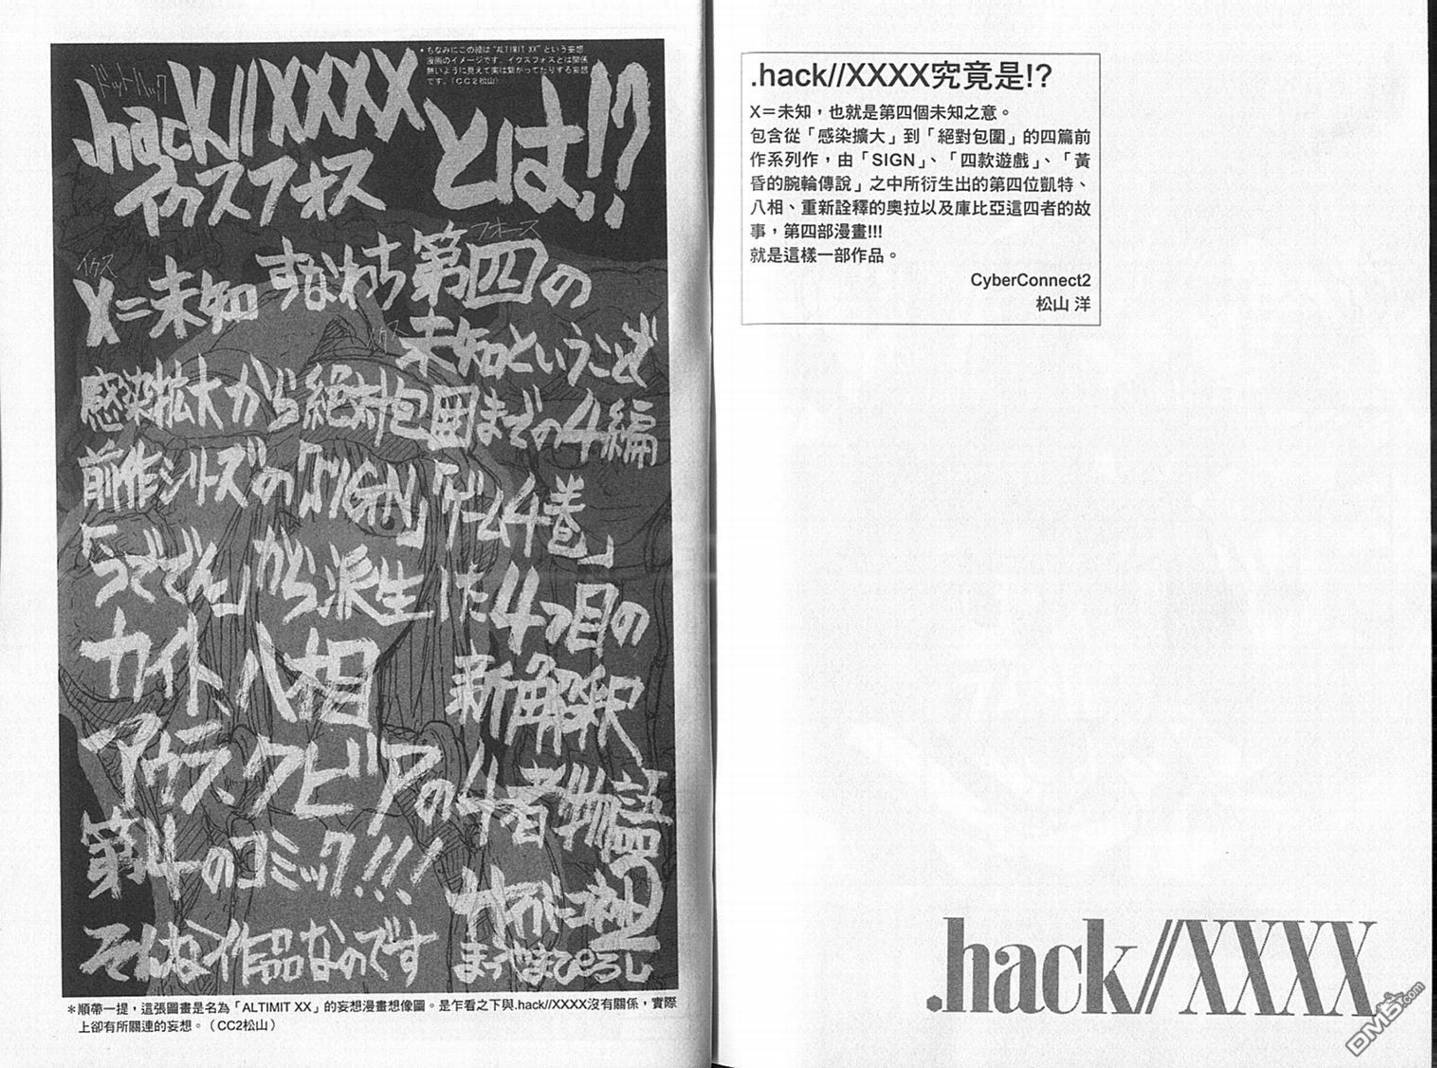 ・ちなみにこの絵は“ALTIMIT XX”という妄想
漫画のイメージです。イクスフォスとは関係
無いように見えて実は繋がってたりする妄想
です。(CC2松山)
ドットハック
.hack//XXXXとは!?
イクスフォス
イクス
フォース
X=未知 すなわち第四の
イクス
未知ということで
感染拡大から絶対包囲までの4編
前作シリーズの「SIGN」「ゲーム4巻」
「うででん」から派生した4つ目の
カイト、八相 新解釈
アウラ、クビアの4者物語
第4のコミック!!!
そんな作品なのです
まつやまひろし
*順帶一提，這張圖畫是名為「ALTIMIT XX」的妄想漫畫想像圖。是乍看之下與.hack//XXXX沒有關係，實際
上卻有所關連的妄想。(CC2松山)
.hack//XXXX究竟是!?
X＝未知，也就是第四個未知之意。
包含從「感染擴大」到「絕對包圍」的四篇前
作系列作，由「SIGN」、「四款遊戲」、「黃
昏的腕輪傳說」之中所衍生出的第四位凱特、
八相、重新詮釋的奧拉以及庫比亞這四者的故
事，第四部漫畫!!!
就是這樣一部作品。
CyberConnect2
松山 洋
.hack//XXXX
DM5.com